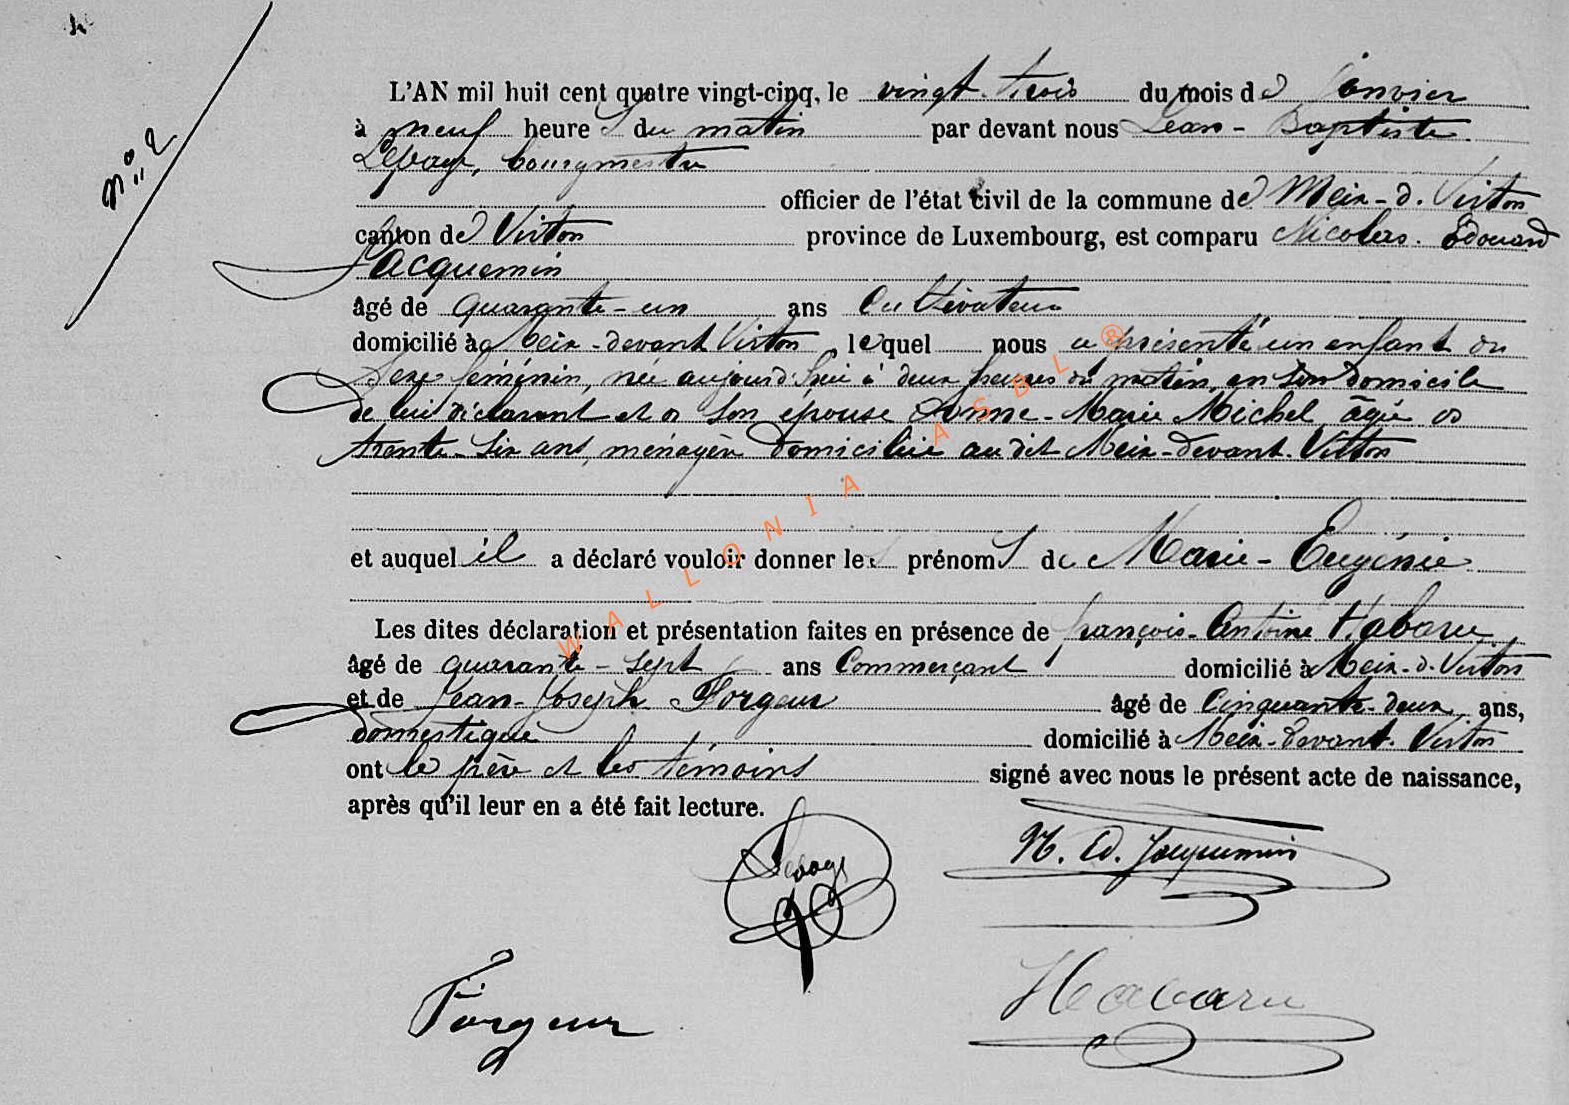 n° 2
L'AN mil huit cent quatre vingt-cinq, le vingt-trois du mois de Janvier
à neuf heures du matin par devant nous Jean-Baptiste
Lepage, bourgmestre
officier de l'état civil de la commune de Meix-d. Virton
canton de Virton province de Luxembourg, est comparu Nicolas-Edouard
Jacquemin
âgé de quarante-un ans Cultivateur
domicilié à Meix-devant Virton, lequel nous a présenté un enfant du
sexe féminin, née aujourd'hui à deux heures du matin, en son domicile
de lui déclarant et de son épouse Anne-Marie Michel âgée de
trente-six ans, ménagère domiciliée au dit Meix-devant-Virton
et auquel il a déclaré vouloir donner les prénoms de Marie-Eugénie
Les dites déclaration et présentation faites en présence de françois-Antoine Habaru
âgé de quarante-sept ans Commerçant domicilié à Meix-d-Virton
et de Jean-Joseph Forgeur âgé de Cinquante-deux ans,
domestique domicilié à Meix-devant-Virton
ont le père et les témoins signé avec nous le présent acte de naissance,
après qu'il leur en a été fait lecture.
Lepage
N. Ed. Jacquemin
Forgeur
Habaru
WALLONIA ASBL ®